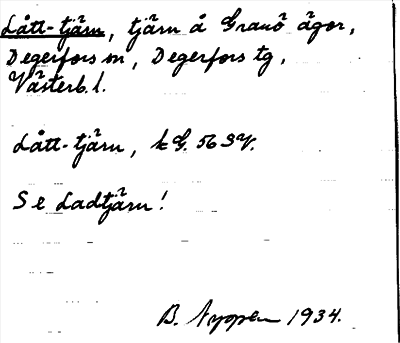 Lått-tjärn, tjärn å Granö ägor,
Degerfors sn, Degerfors tg,
Västerb. l.
Lått-tjärn, kG. 56 SV.
Se Ladtjärn!
B. Nyopen 1934.